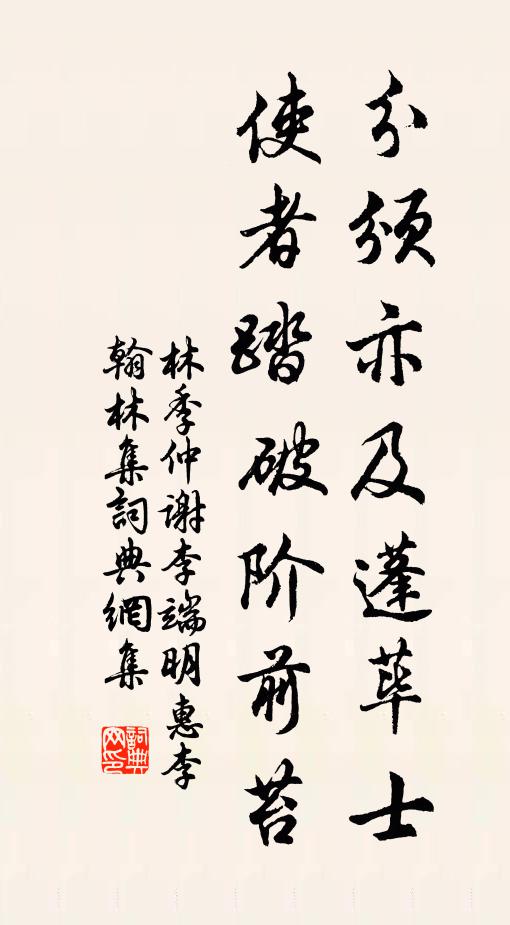 分颁亦及蓬荜士
使者踏破阶前苔
林季仲谢李端明惠李
翰林集詞典網集
詞典
网印